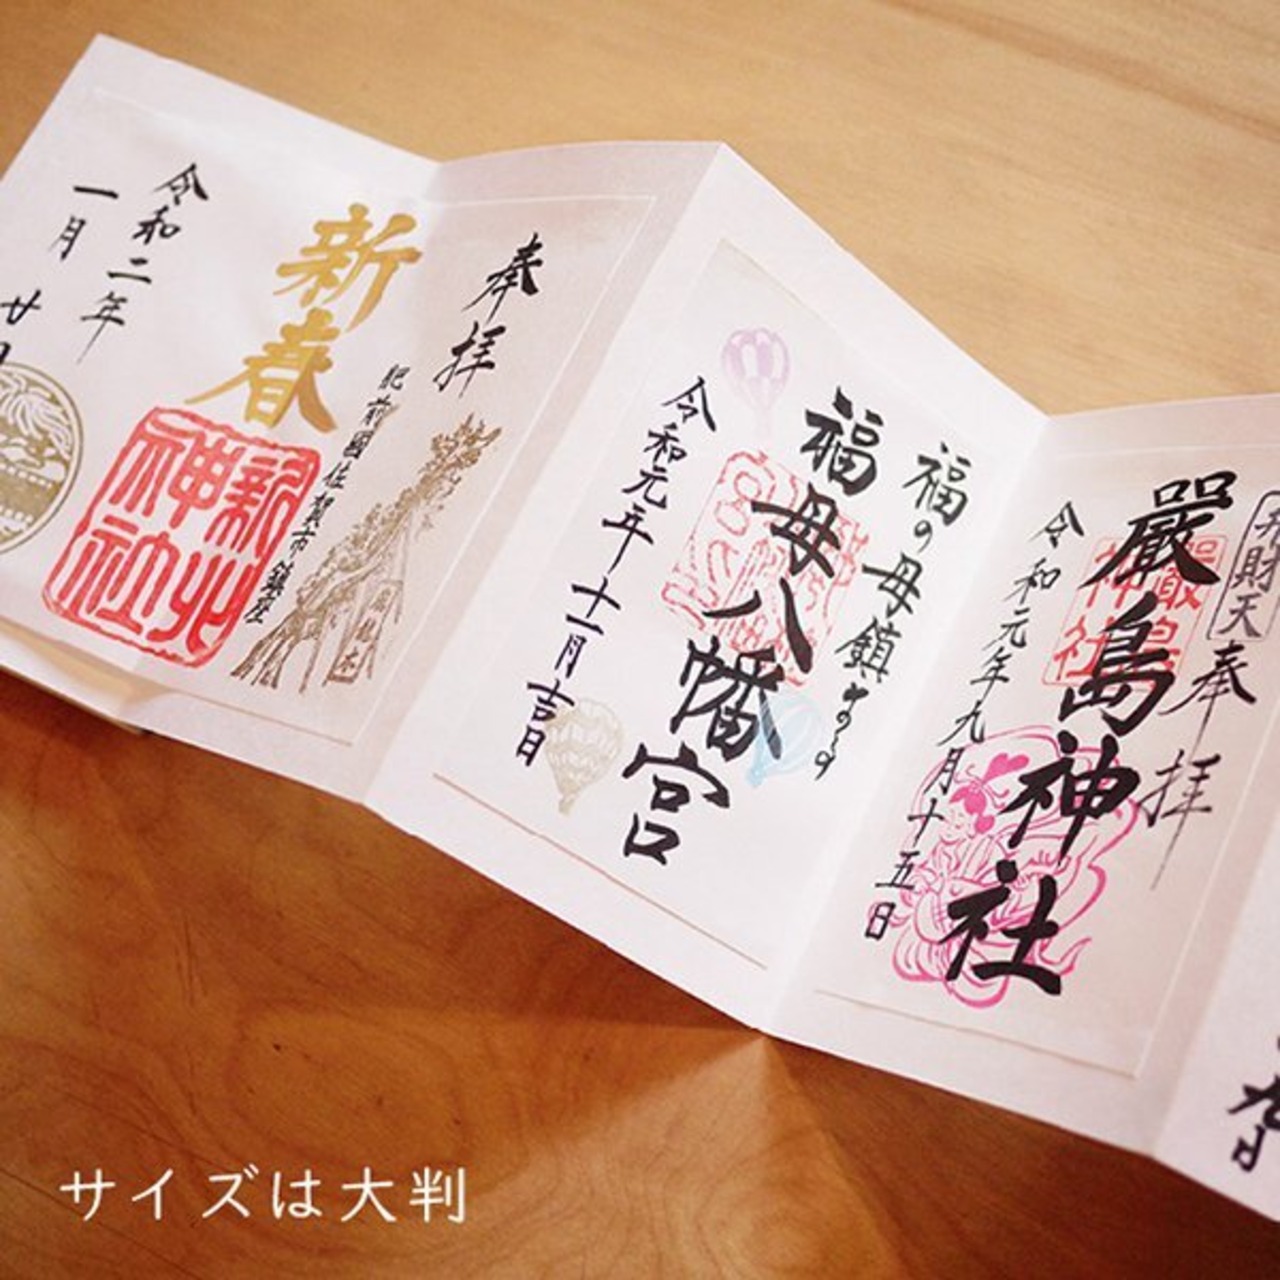 奉拝
肥前國佐賀市鎮座
新春
新北
神社
令和二年
一月
福の母鎮まるの
福母八幡宮
令和元年十一月吉日
弁財天
奉拝
厳島神社
厳島
神社
令和元年九月十五日
九日
サイズは大判